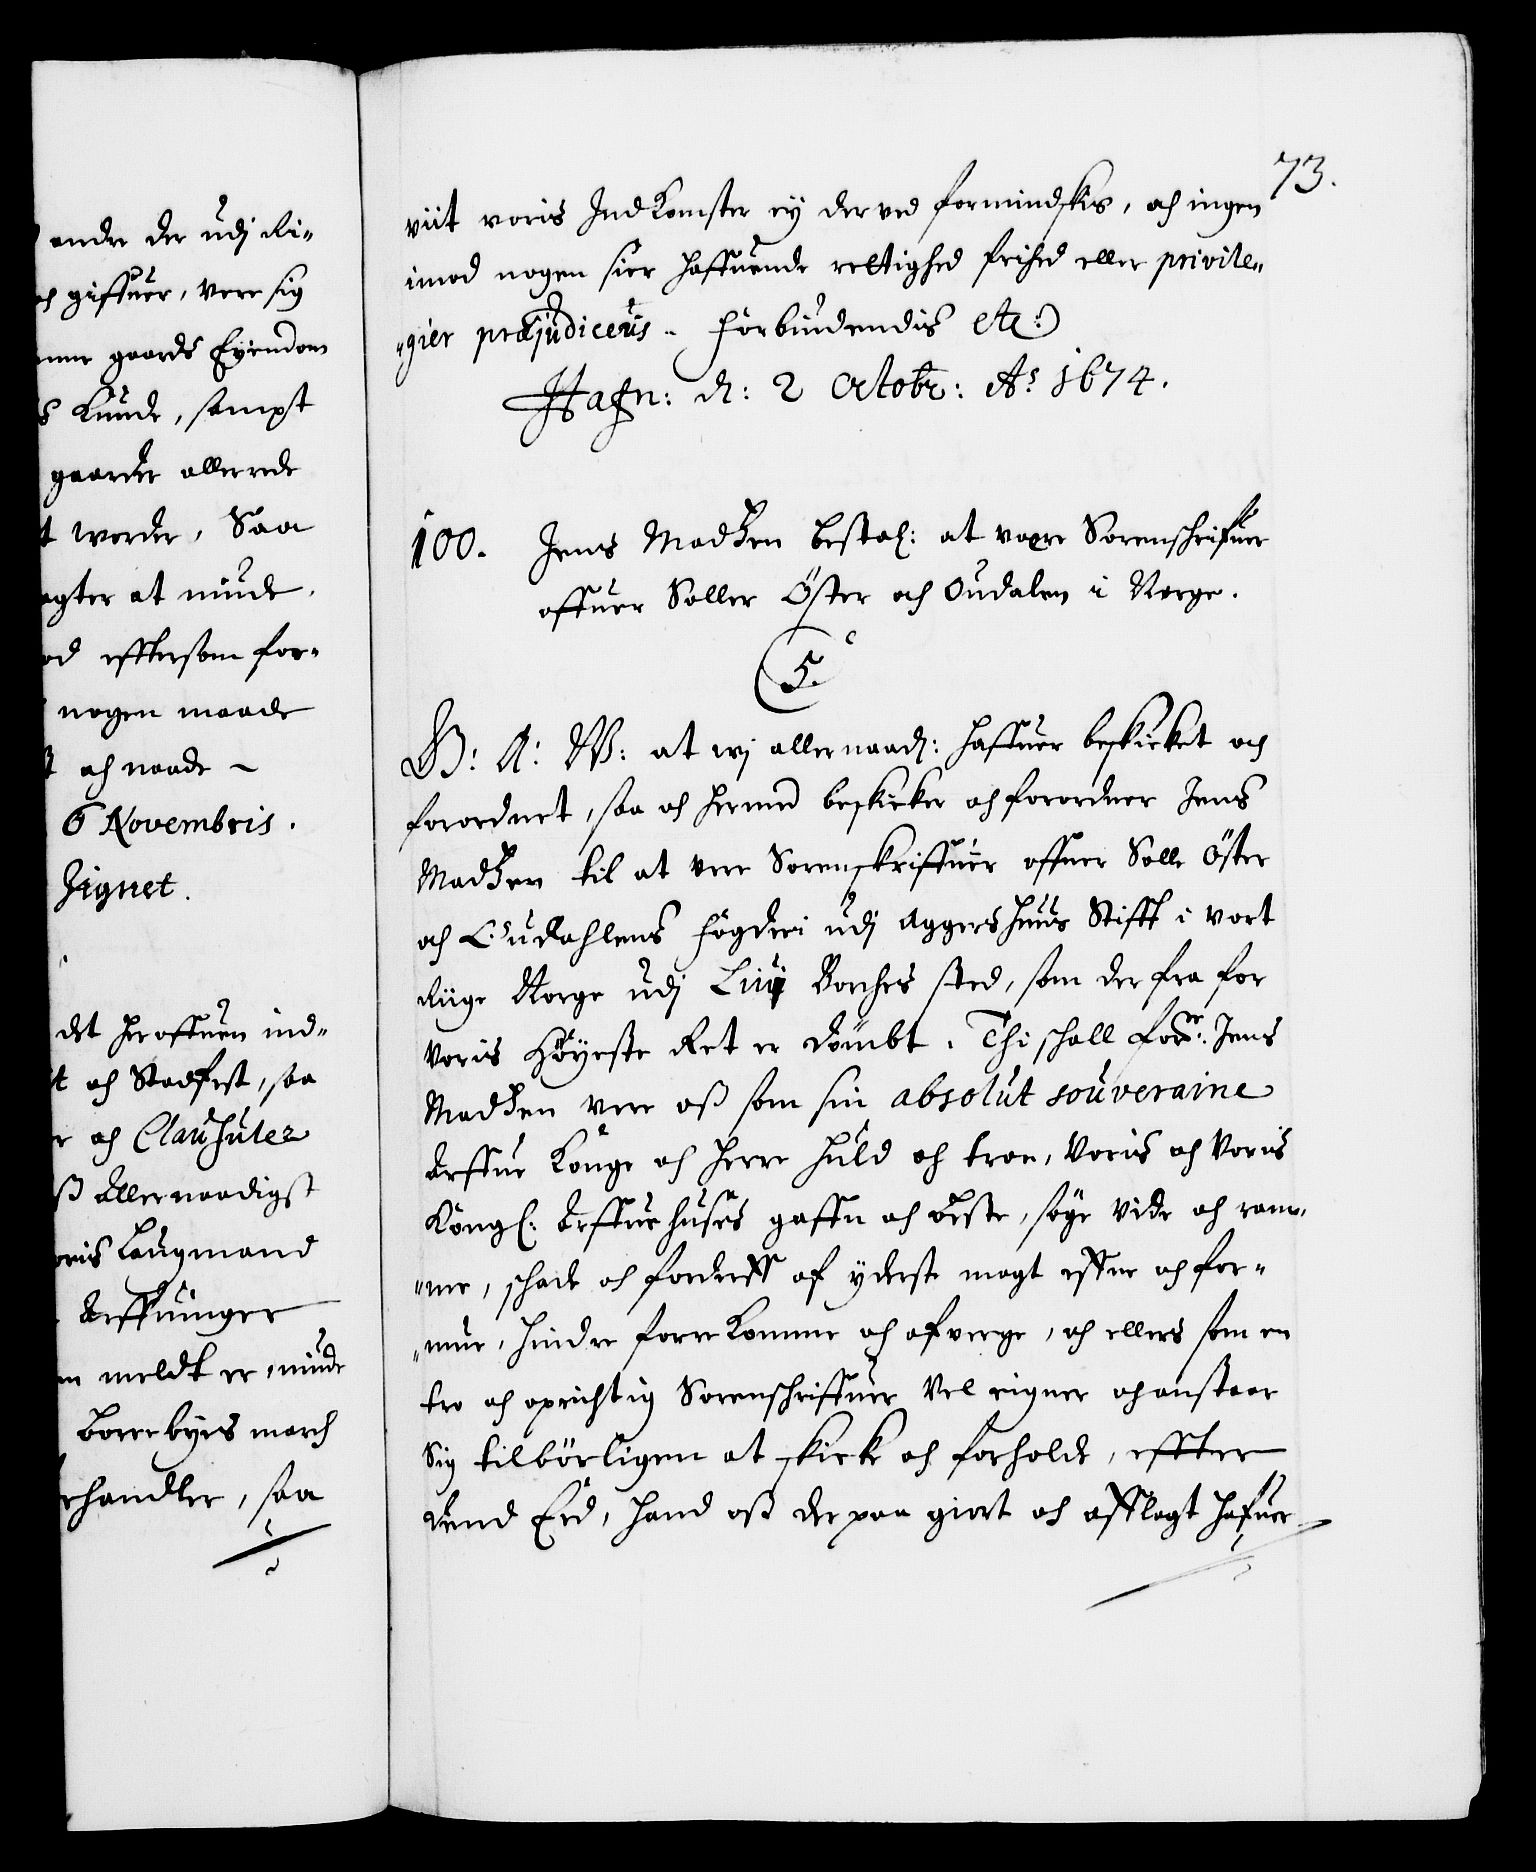 andre der udj Ri-
och gifftuer, vere sig
gaards Eyendom
Kunde, sampt
gaarder allerrede
worder, Saa
agter at niude.
efftersom for-
nogen maade
och naade ~
6 Novembris.
Zignet.
det heroffuen ind-
och Stadfest, saa
och Clausuler
Allernaadigst
voris Laugmand
Arffuinger
meldt er, niude
Borrebyes march
handler, saa
73.
viit voris Indkomster ey derved formindskis, och ingen
imod nogen sier haffuende rettighed frihed eller privile-
-gier præjudiceris - Forbiudendis etc:
Hafn: d: 2 Octobr: Ao 1674.
100. Jens Madtzen bestal: at være Sorenschrifuer
offuer Soller Öster och Oudalen i Norge.
5.
G: A: W: at wj allernaad: haffuer beskicket och
forordnet, saa och hermed beskicker och forordner Jens
Madtzen til at vere Sorenskriffuer offuer Solle Öster
och Oudahlens fögderi udj Aggershuus Stifft i vort
Riige Norge udj Liuj Borches sted, som der fra for
voris Höyeste Ret er dömbt. Thi schall forne: Jens
Madtzen vere oß som sin absolut souveraine
Arffue Konge och Herre huld och troe, Voris och Voris
Kongl: Arffue huses gaffn och beste, söge vide och ram-
-me, schade och forderff af yderste magt effne och for-
-mue, hindre forrekomme och afverge, och ellers som en
tro och oprichtig Sorenschriffuer Vel eigner och anstaar
Sig tilbörligen at skicke och forholde, effter
dend Eed, hand oß der paa giort och afflagt hafuer